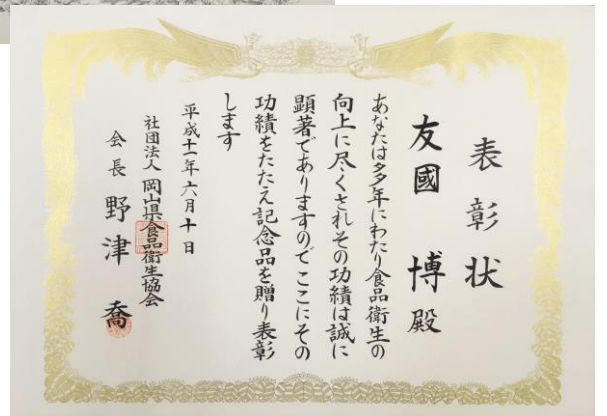 表彰状
友國 博殿
あなたは多年にわたり食品衛生の
向上に尽くされその功績は誠に
顕著でありますのでここにその
功績をたたえ記念品を贈り表彰
します
平成十一年六月十日
社団法人 岡山県食品衛生協会
会長 野津 喬